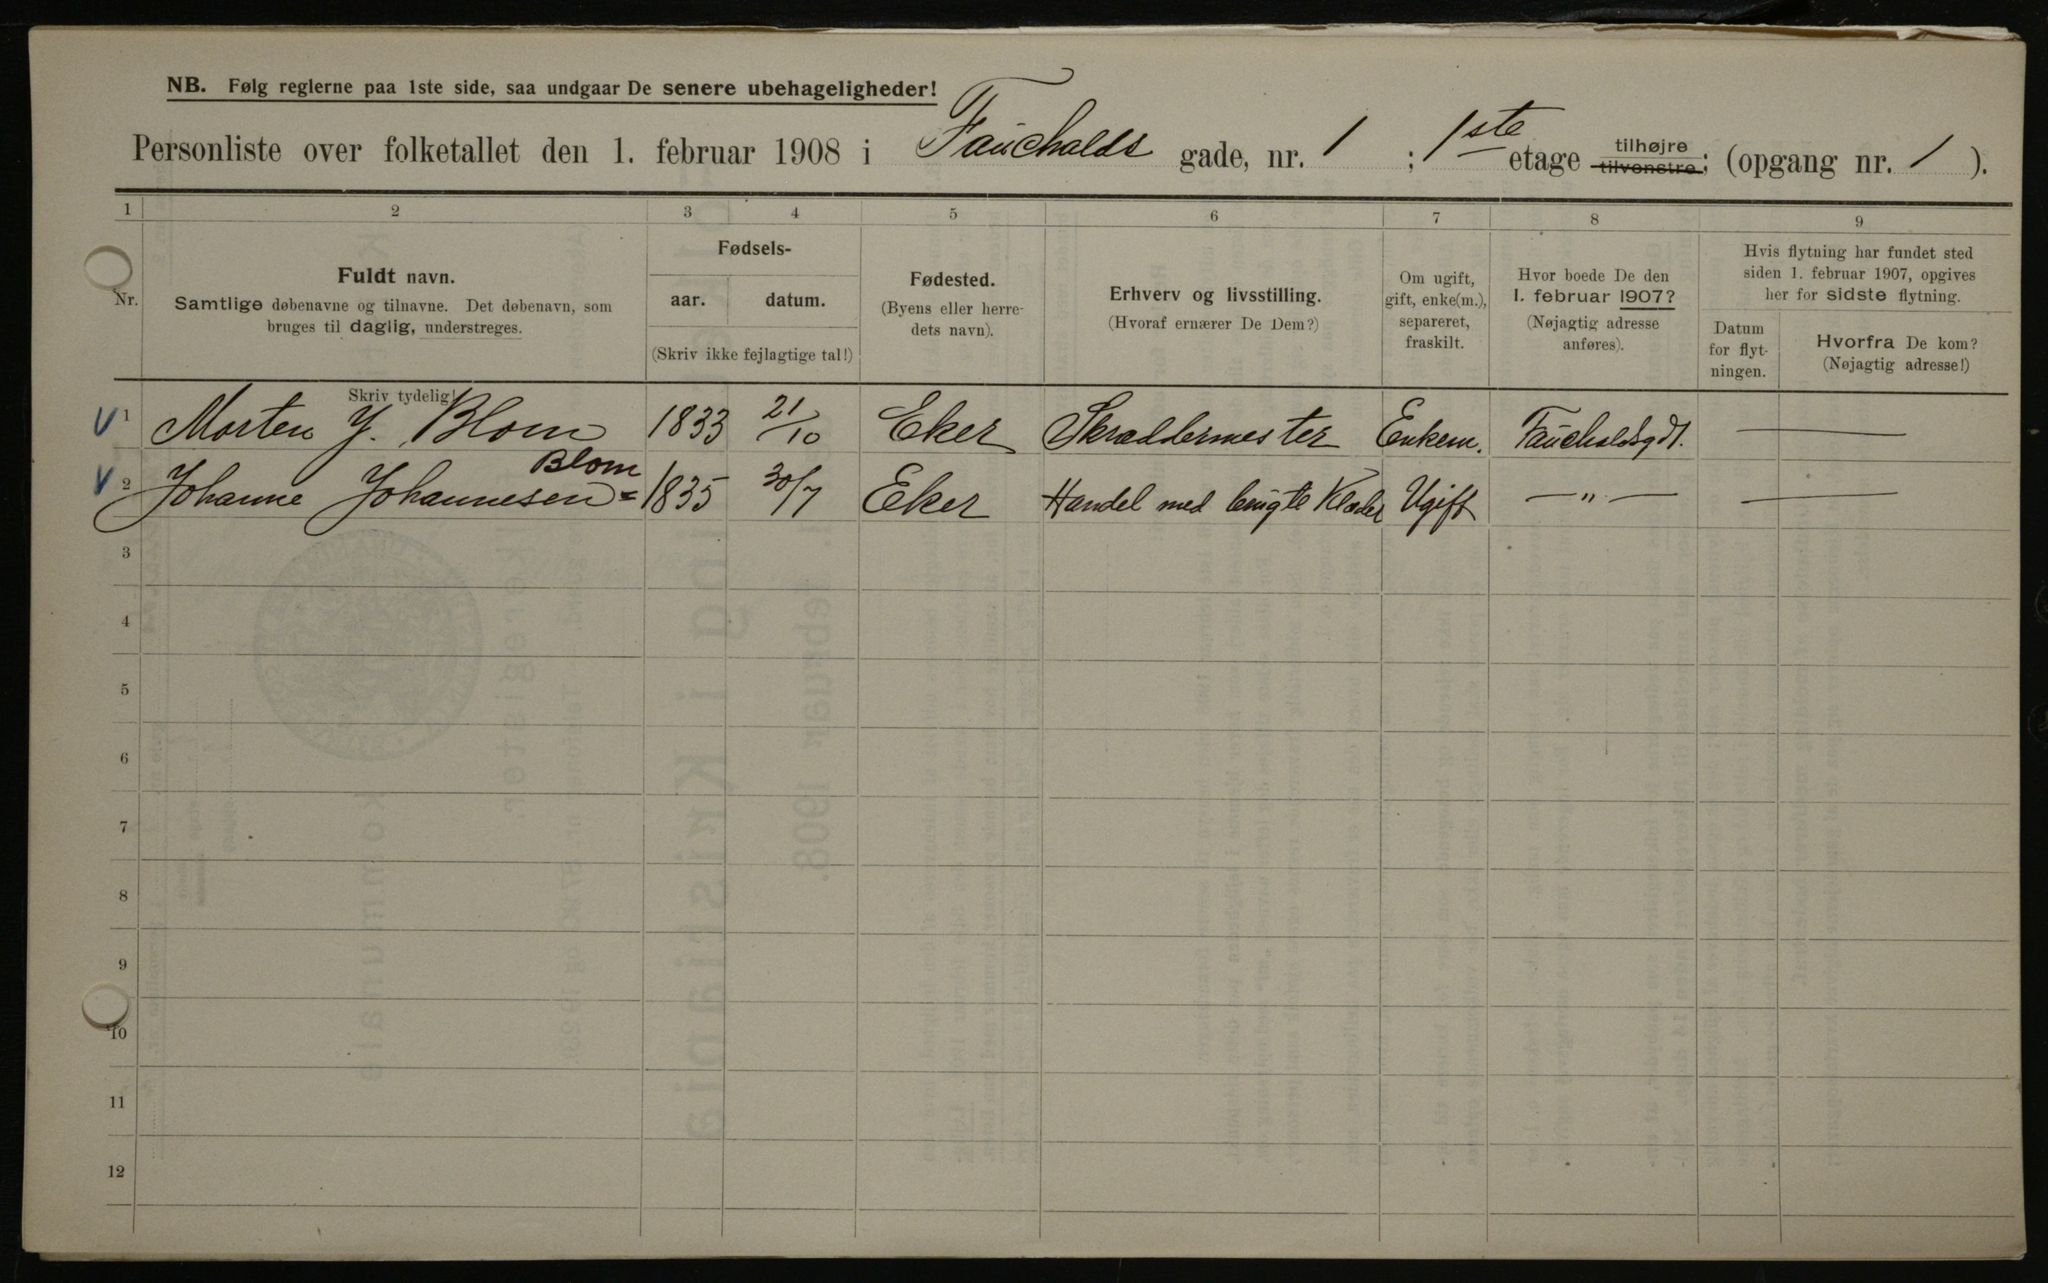 NB. Følg reglerne paa 1ste side, saa undgaar De senere ubehageligheder!
Personliste over folketallet den 1. februar 1908 i Fauchalds gade, nr. 1 ; 1ste etage tilhøjre tilvenstre; (opgang nr. 1 ).
1 2 3 4 5 6 7 8 9
Nr.
Fuldt navn.
Samtlige døbenavne og tilnavne. Det døbenavn, som
bruges til daglig, understreges.
Skriv tydelig!
Fødsels-
aar. datum.
(Skriv ikke fejlagtige tal!)
Fødested.
(Byens eller herre-
dets navn).
Erhverv og livsstilling.
(Hvoraf ernærer De Dem?)
Om ugift,
gift, enke(m.),
separeret,
fraskilt.
Hvor boede De den
1. februar 1907?
(Nøjagtig adresse
anføres).
Hvis flytning har fundet sted
siden 1. februar 1907, opgives
her for sidste flytning.
Datum
for flyt-
ningen.
Hvorfra De kom?
(Nøjagtig adresse!)
V 1 Morten J. Blom 1833 21/10 Eker Skræddermester Enkem. Faucholdsgd1. —
Blom
V 2 Johanne Johannesen = 1835 30/7 Eker Handel med brugte Klæder Ugift — " — —
3
4
5
6
7
8
9
10
11
12